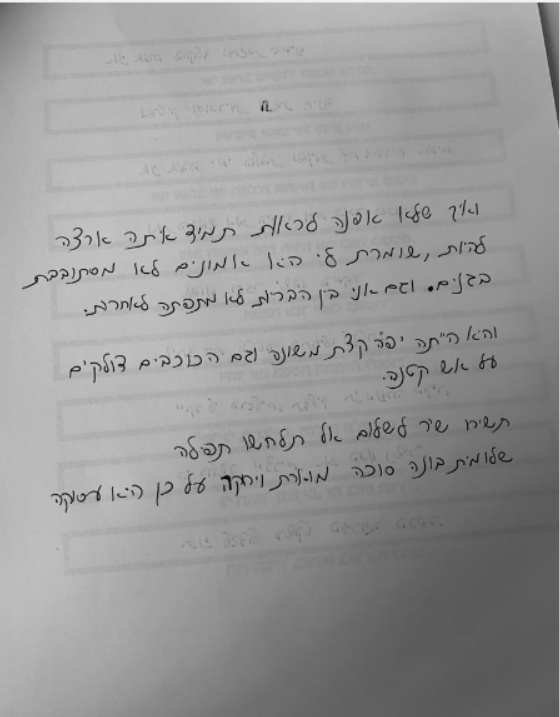 ואיך שלא אפנה לראות תמיד איתה ארצה
להיות, שומרת לי היא אמונים לא מסתובבת
בגנים. וגם אני בין הבריות לא מתפתה לאחרות.
והיא הייתה יפה קצת משונה וגם הכוכבים דולקים
על אש קטנה.
תשירו שיר לשלום אל תלחשו תפילה
שלומית בונה סוכה מוארת וירוקה על כן היא עסוקה